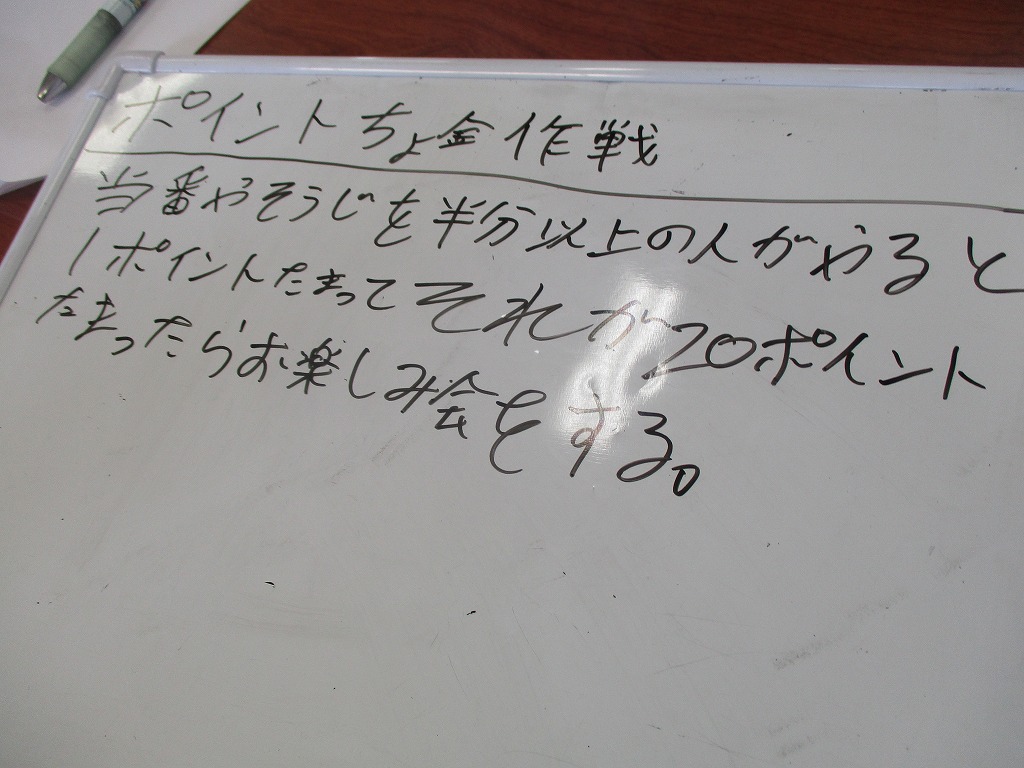 ポイントちょ金作戦
当番やそうじを半分以上の人がやると
1ポイントたまってそれが20ポイント
たまったらお楽しみ会をする。